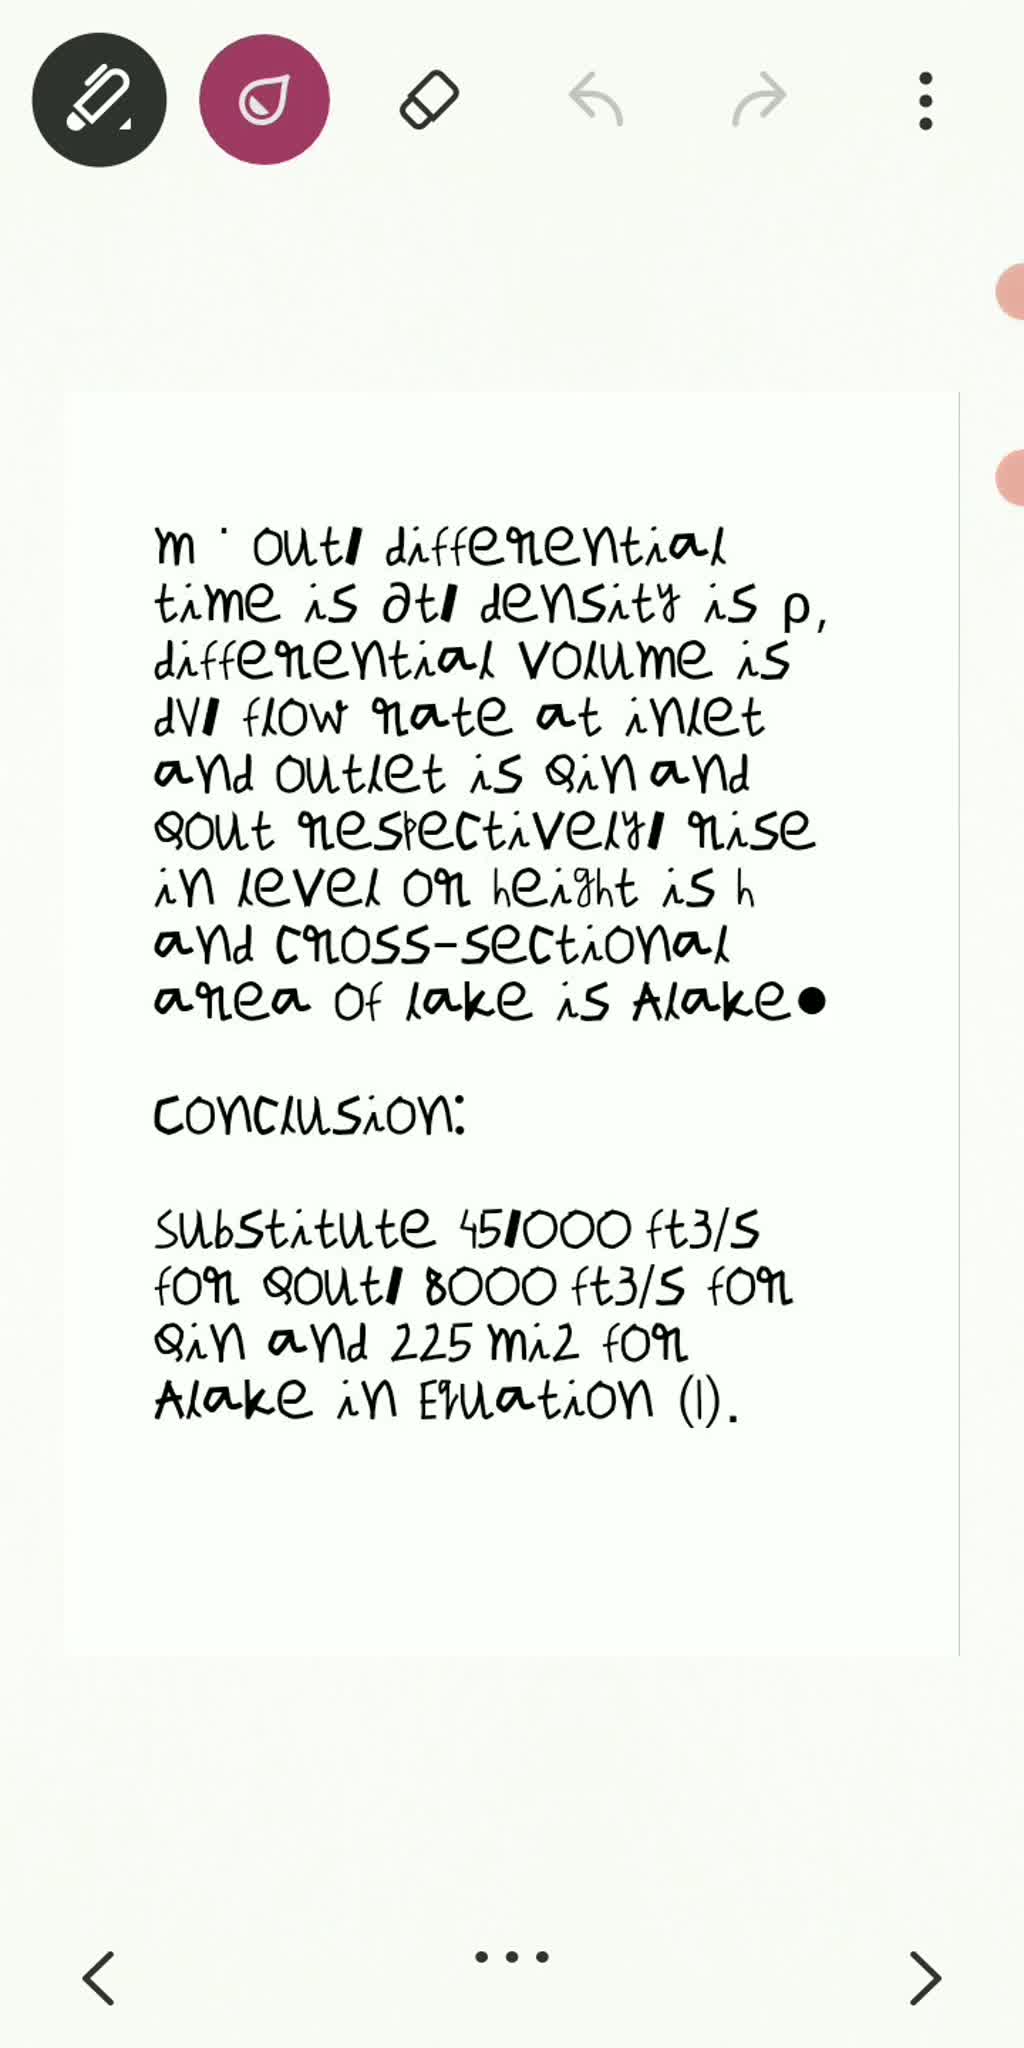 m ˙ out, differential
time is ∂t, density is ρ,
differential volume is
dV, flow rate at inlet
and outlet is Qin and
Qout respectively, rise
in level or height is h
and cross-sectional
area of lake is Alake.
Conclusion:
Substitute 45,000 ft3/s
for Qout, 8000 ft3/s for
Qin and 225 mi2 for
Alake in Equation (1).